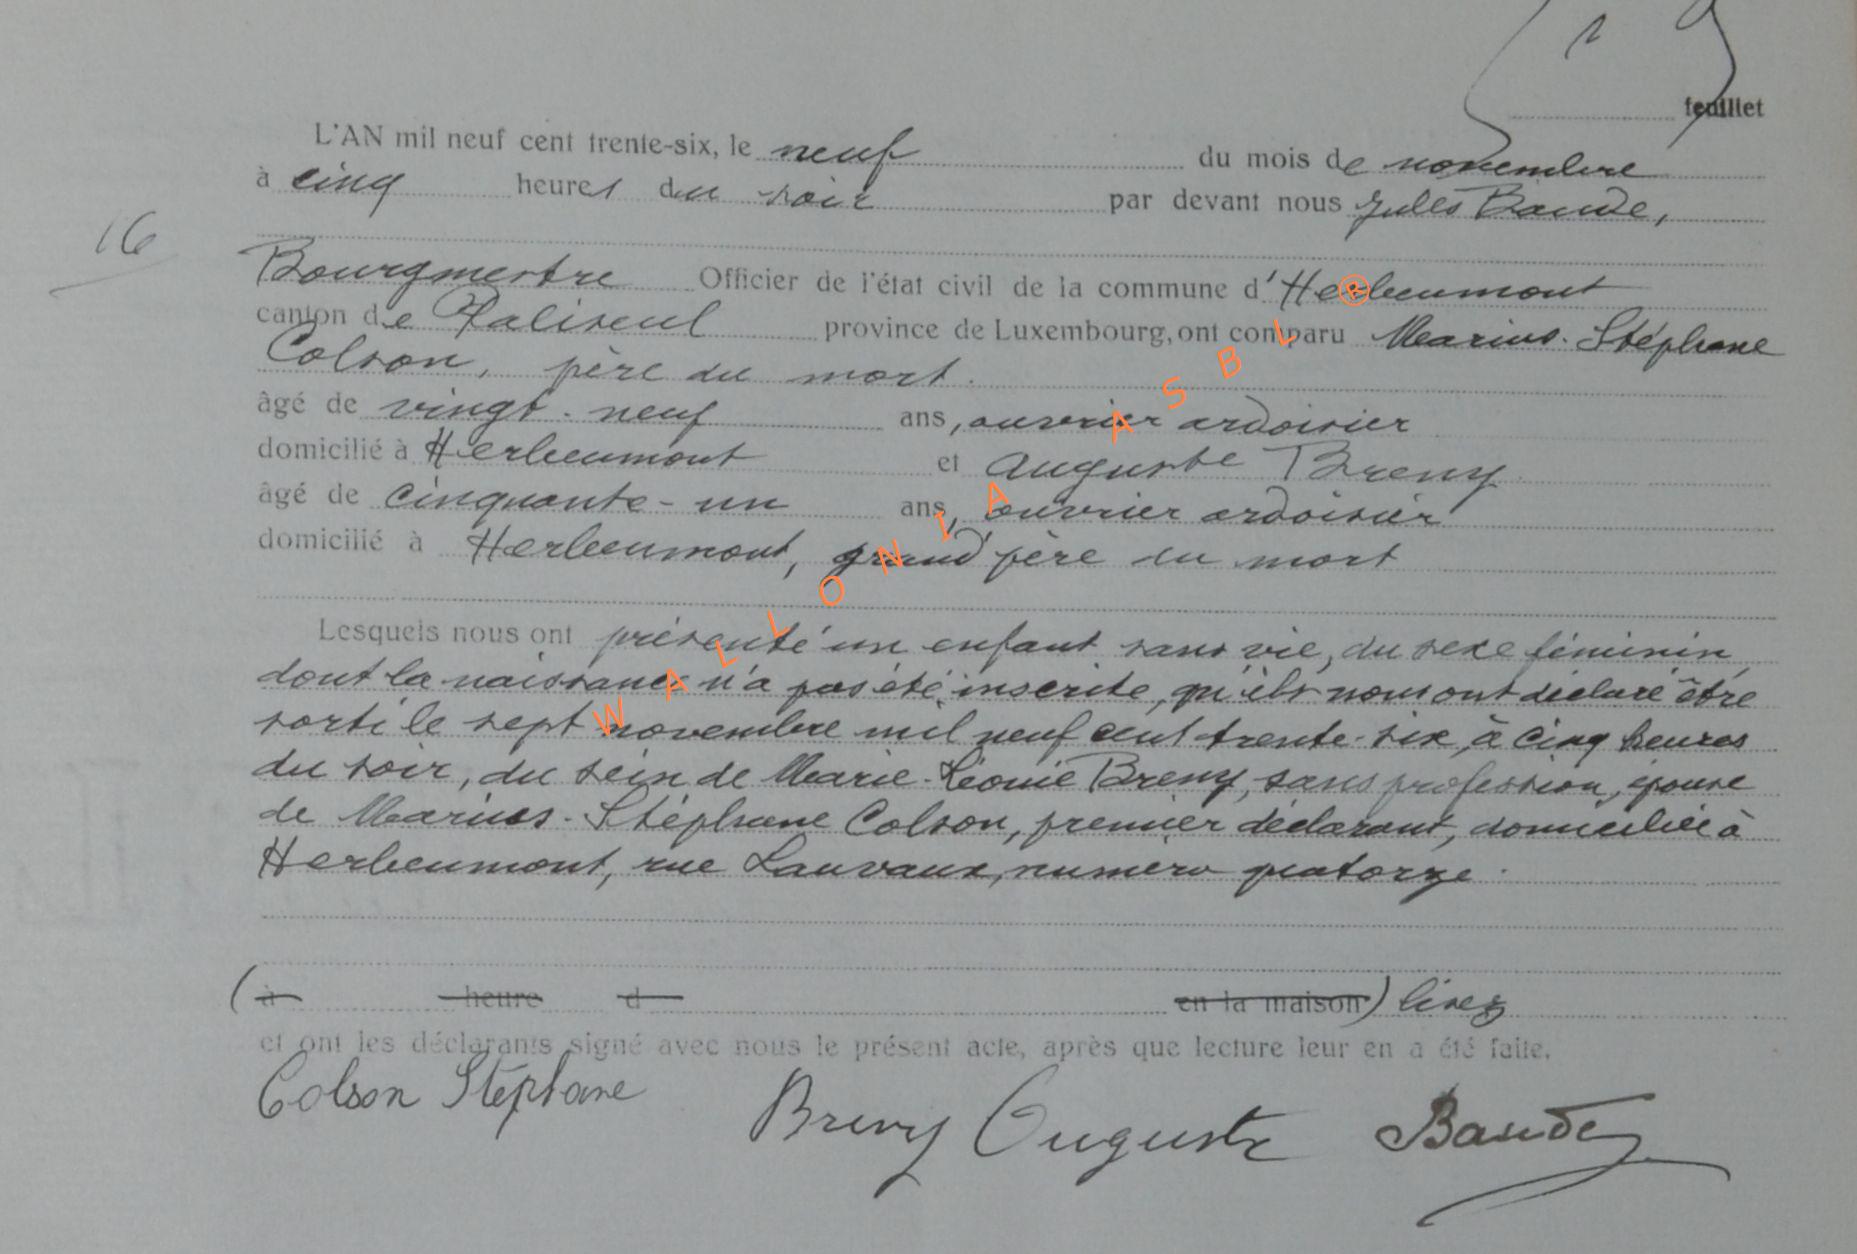 feuillet
L'AN mil neuf cent trente-six, le neuf du mois de novembre
à cinq heures du soir par devant nous Jules Baude,
16
Bourgmestre Officier de l'état civil de la commune d'Herbeumont
canton de Paliseul province de Luxembourg, ont comparu Marius-Stéphane
Colson, père du mort.
âgé de vingt-neuf ans, ouvrier ardoisier
domicilié à Herbeumont et Auguste Breny
âgé de cinquante-un ans, ouvrier ardoisier
domicilié à Herbeumont, grand'père du mort
Lesquels nous ont présenté un enfant sans vie, du sexe féminin
dont la naissance n'a pas été inscrite, qu'ils nous ont déclaré être
sorti le sept novembre mil neuf cent trente-six, à cinq heures
du soir, du sein de Marie-Léonie Breny, sans profession, épouse
de Marius-Stéphane Colson, premier déclarant, domiciliée à
Herbeumont, rue Lauvaux, numéro quatorze.
(à heure d en la maison) lirez
et ont les déclarants signé avec nous le présent acte, après que lecture leur en a été faite.
Colson Stéphane Breny Auguste Baude
WALLONIA ASBL ®